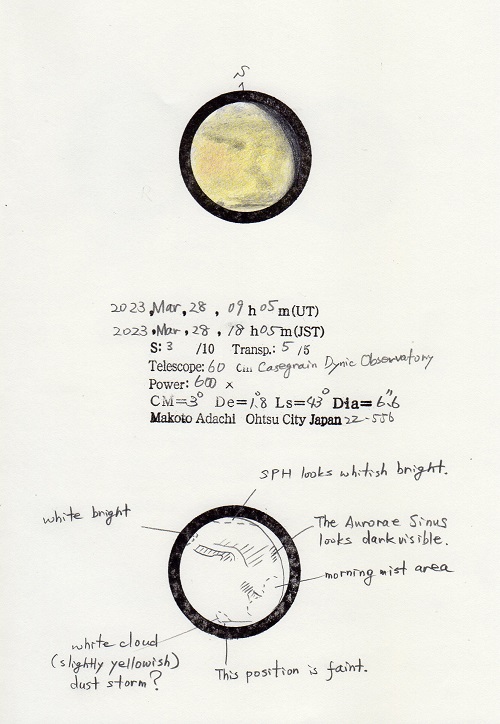 S
2023, Mar, 28, 09 h 05 m (UT)
2023, Mar, 28, 18 h 05 m (JST)
S: 3 /10 Transp.: 5 /5
Telescope: 60 cm Casegrain Dynic Observatory
Power: 600 ×
CM=3° De=1.8° Ls=43° Dia=6.6"
Makoto Adachi Ohtsu City Japan 22-556
SPH looks whitish bright.
white bright
The Aurorae Sinus
looks dark visible.
morning mist area
white cloud
(slightly yellowish)
dust storm?
This position is faint.